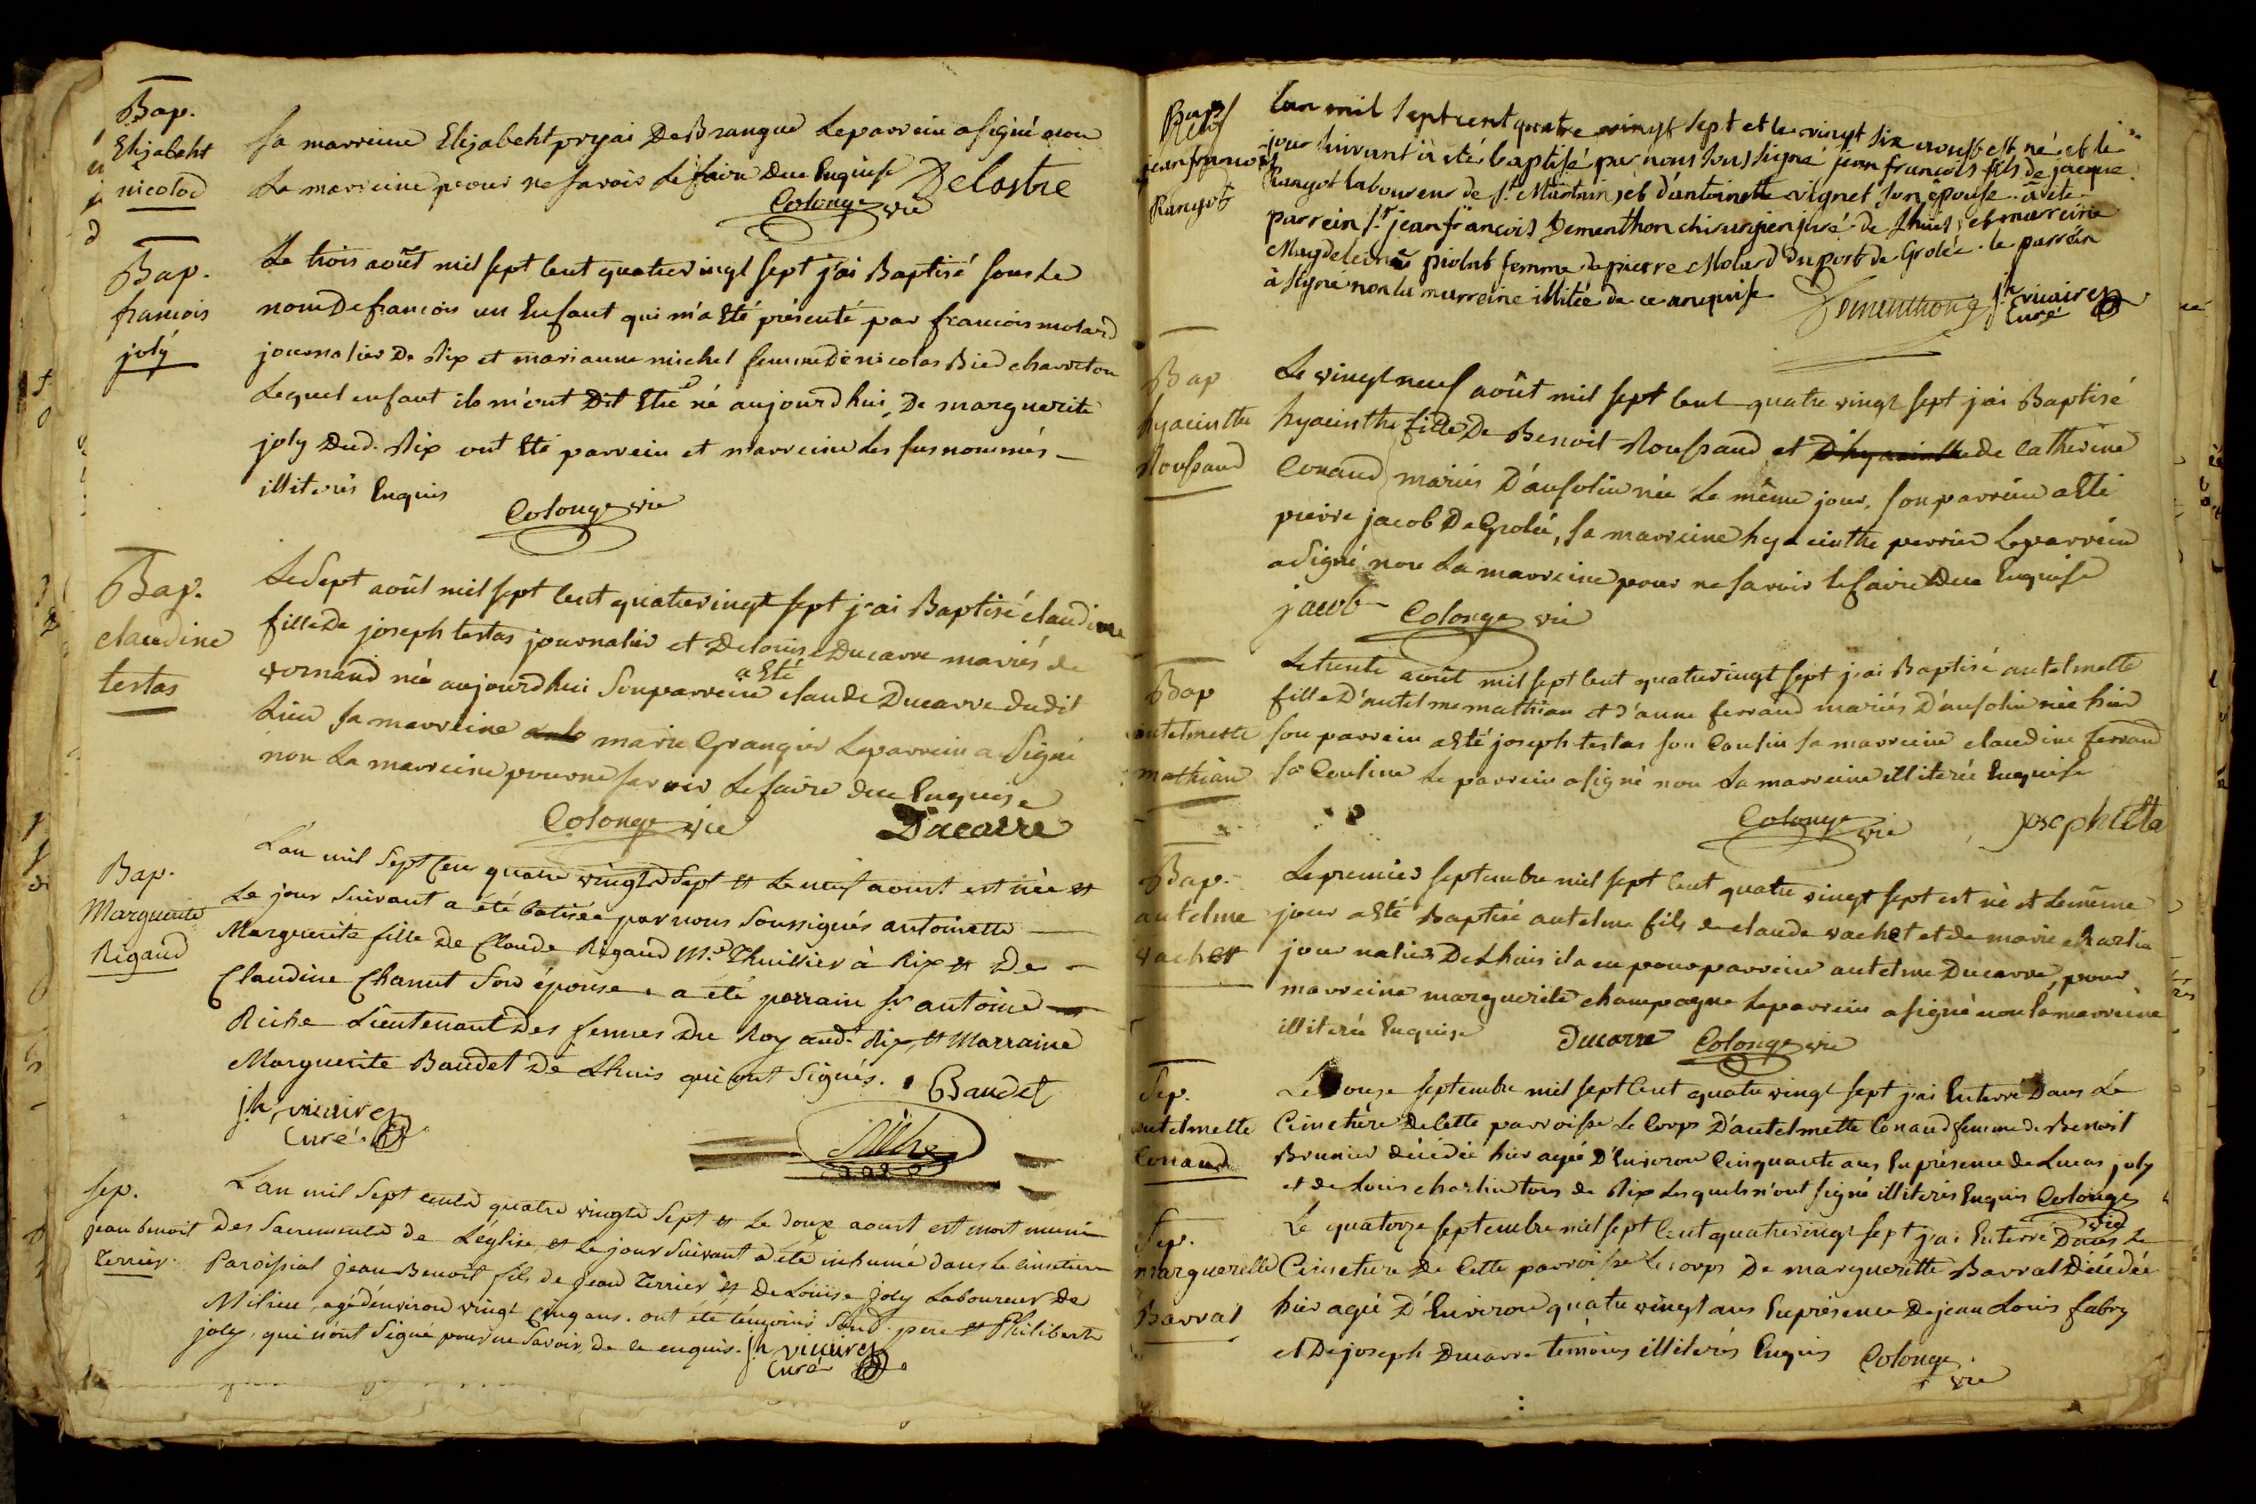 Bap.
Elizabeht
nicolod
Sa marreine Elizabeht pryai De Brangue Le parrein a signé non
La marreine pour ne savoir Le faire Due Enquise Delastre
Colonge vic
Bap.
francois
joly
Le trois août mil sept Cent quatre vingt sept j'ai Baptisé sous Le
nom De francois un Enfant qui m'a Eté présenté par francois molard
journalier De Rix et marianne michel femme De nicolas Bied charreton
Lequel enfant ils m'ont Dit Etre né aujourdhui De marguerite
joly Dud. Rix ont Eté parrein et marreine Les susnommés
illiterés Enquis
Colonge vic
Bap.
claudine
testas
Le Sept août mil sept Cent quatre vingt sept j'ai Baptisé claudine
fille De joseph testas journalier et De Louise Ducarre mariés de
vornand née aujourdhui Son parrein a Eté claude Ducarre dudit
Lieu Sa marreine marie Grangier Le parrein a Signé
non La marreine pour ne savoir Le faire due Enquise
Colonge vic Ducarre
Bap.
Marguerite
Rigaud
L'an mil Sept Cens quatre vingts Sept et Le neuf aoust est née et
Le jour Suivant a été batisée par nous Soussignés antoinette
Marguerite fille De Claude Rigaud Md. Thuillier à Rix et De
Claudine Chanut Son épouse. a été parrain Sr. antoine
Riche Lieutenant Des fermes Du Roy aud. Rix et Marraine
Marguerite Baudet De Lhuis qui ont Signés. Baudet
jh, vicaire
Curé.
Riche
Sep.
jean benoit
terrier.
L'an mil Sept cents quatre vingts Sept et Le douze aoust est mort muni
Des Sacrements de L'église, et Le jour Suivant a été inhumé dans Le cimetiere
Paroissial Jean Benoit fils de Jean Terrier et De Louise Joly Laboureur De
Milieu, agé d'environ vingt Cinq ans. ont été témoins Sond. pere et Philiberte
joly, qui n'ont Signé pour ne Savoir, de ce enquis. jh vicaire
Curé
Bap
jean francois
Rangot
L'an mil sept cent quatre vingt sept et le vingt six aoust est né et le
jour suivant à eté baptisé par nous sous signé jean francois fils de jacque
Rangot laboureur de St. Martain, et d'antoinette vignet son épouse. à eté
parrein Sr. jean françois Dementhon chirurgien juré de Lhuis, et marreine
Magdeleine piolat femme de pierre Molard du port de Grolée. le parrein
à signé non la marreine illitée de ce anquise Dementhon jh vicaire
Curé
Bap
hyacinthe
Roussaud
Le vingt neuf août mil sept Cent quatre vingt sept j'ai Baptisé
hyacinthe fille De Benoit Roussaud et D'hyacinthe de Catherine
Conand mariés D'ansolin née Le même jour, Son parrein a Eté
pierre jacob De Grolée, Sa marreine hyacinthe perrier Le parrein
a Signé non La marreine pour ne savoir Le faire Due Enquise
jacob Colonge vic
Bap
antelmette
mathian
Le trente août mil sept Cent quatre vingt sept j'ai Baptisé antelmette
fille D'antelme mathian et d'anne ferrand mariés D'ansolin née hier
Son parrein a Eté joseph testas Son Cousin Sa marreine claudine ferrand
Sa Cousine Le parrein a signé non La marreine illiterée Enquise
Colonge vic joseph
Bap.
antelme
vachet
Le premier septembre mil sept Cent quatre vingt sept est né et Le même
jour a Eté Baptisé antelme fils de claude vachet et de marie charlin
journalier De Lhuis il a eu pour parrein antelme Ducarre, pour
marreine marguerite champagne Le parrein a signé non La marreine
illiterée Enquise Ducarre Colonge vic
Sep.
antelmette
Conand
Le Douze septembre mil sept Cent quatre vingt sept j'ai Enterré Dans Le
Cimetière De Cette parroisse Le Corps D'antelmette Conand femme de Benoit
Brunier décédée hier agée D'Environ Cinquante ans En présence de Lucas joly
et de Louis charlin tous de Rix Lesquels n'ont signé illiterés Enquis Colonge
vic
Sep.
marguerette
Barral
Le quatorze septembre mil sept Cent quatre vingt sept j'ai Enterré Dans Le
Cimetière De Cette parroisse Le corps De marguerette Barral Décédée
hier agée D'Environ quatre vingt ans En présence De jean Louis fabry
et De joseph Ducarre témoins illiterés Enquis Colonge
vic